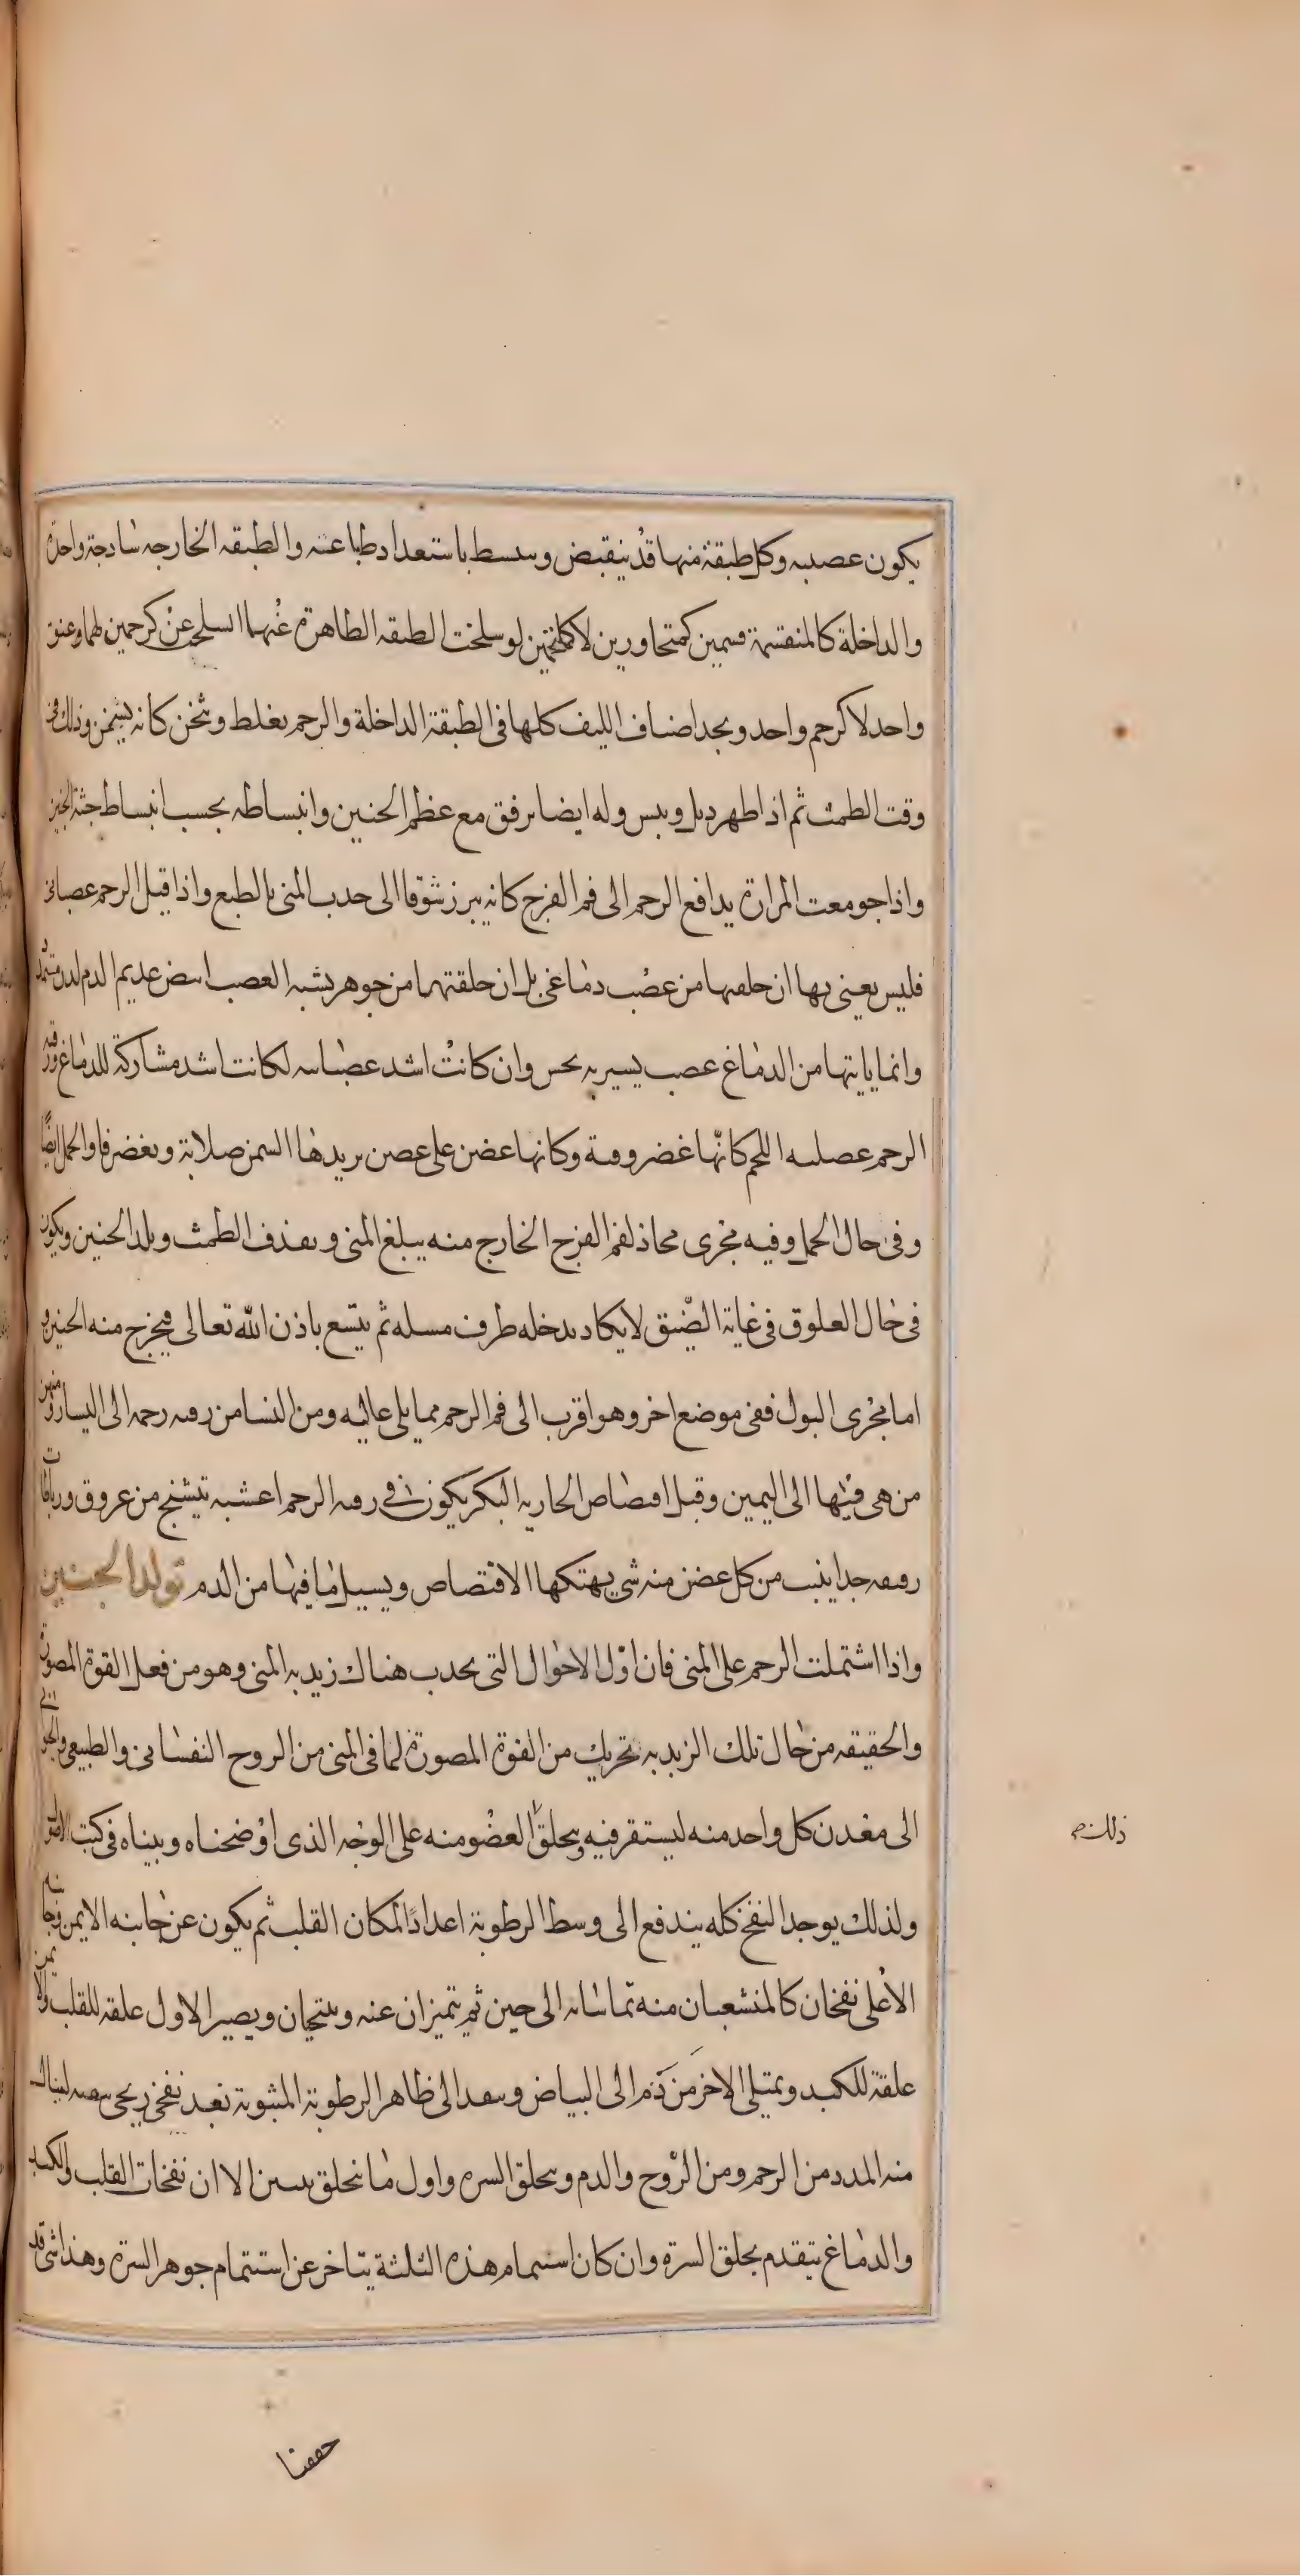 يكون عصبيه وكل طبقة منها قد ينقبض وينبسط باستعداد طباعه والطبقه الخارجه ساذجة واحدة
والداخلة كالمنقسمة قسمين كمتجاورين لا كملتحمين لو سلخت الطبقه الظاهرة عنهما انسلح عن كرحمين لهما وعنق
واحد لا كرحم واحد ويجد اصناف الليف كلها فى الطبقة الداخلة والرحم يغلظ ويثخن كانه يسمن وذلك فى
وقت الطمث ثم اذا طهر ذبل ويبس وله ايضا ترفق مع عظم الجنين وانبساطه بحسب انبساط جثة الجنين
واذا جومعت المراة يدافع الرحم الى فم الفرج كانه يبرز شوقا الى جذب المنى بالطبع واذا قيل الرحم عصبانى
فليس يعنى بها ان خلقها من عصب دماغى بل ان خلقتهما من جوهر يشبه العصب ابيض عديم الدم لدن متمدد
وانما ياتيها من الدماغ عصب يسير به يحس وان كانت اشد عصبانيه لكانت اشد مشاركة للدماغ ورقبه
الرحم عضليه اللحم كانّها غضروفية وكانها غضن على غصن يزيدها السمن صلابة وتغضرفا والحمل ايضًا
وفى حال الحمل وفيه مجرى محاذ لفم الفرج الخارج منه يبلغ المنى ويقذف الطمث ويلد الجنين ويكون
فى حال العلوق فى غاية الضيق لا يكاد يدخله طرف مسله ثم يتسع باذن الله تعالى فيخرج منه الجنين و
اما مجرى البول ففى موضع اخر وهو اقرب الى فم الرحم مما يلى عاليه ومن النسا من رقبه رحمه الى اليسار ومنهن
من هى فيها الى اليمين وقبل افتضاض الجاريه البكر يكون فى رقبه الرحم اغشيه تنتسج من عروق ورباطات
رقيقه جدا ينبت من كل غضن منه شى يهتكها الافتضاض ويسيل ما فيها من الدم تولد الجنين
واذا اشتملت الرحم على المنى فان اوّل الاحوال التى يحدث هناك زبديه المنى وهو من فعل القوة المصورة
والحقيقه من حال تلك الزبديه تحريك من القوة المصورة لما فى المنى من الروح النفسانى والطبيعى والحيوانى
الى معدن كل واحد منه ليستقر فيه ويخلق العضو منه على الوجه الذى اوضحناه وبيناه فى كتب الاصول
ولذلك يوجد النفخ كله يندفع الى وسط الرطوبة اعدادًا لمكان القلب ثم يكون عن جانبه الايمن وجانبه
الاعلى نفخان كالمنشعبان منه تماسانه الى حين ثم يتميزان عنه ويتنحيان ويصير الاول علقه للقلب والايمن
علقة للكبد ويمتلى الاخر من دم الى البياض وينفذ الى ظاهر الرطوبة المبثوثة نفخ ريحى لينال
منه المدد من الرحم ومن الرّوح والدم ويخلق السره واول ما يخلق الا ان نفخات القلب والكبد
والدماغ يتقدم بخلق السرة وان كان استتمام هذه الثلثة يتاخر عن استتمام جوهر السرة وهذا شى قد
ذلك صح
حققنا